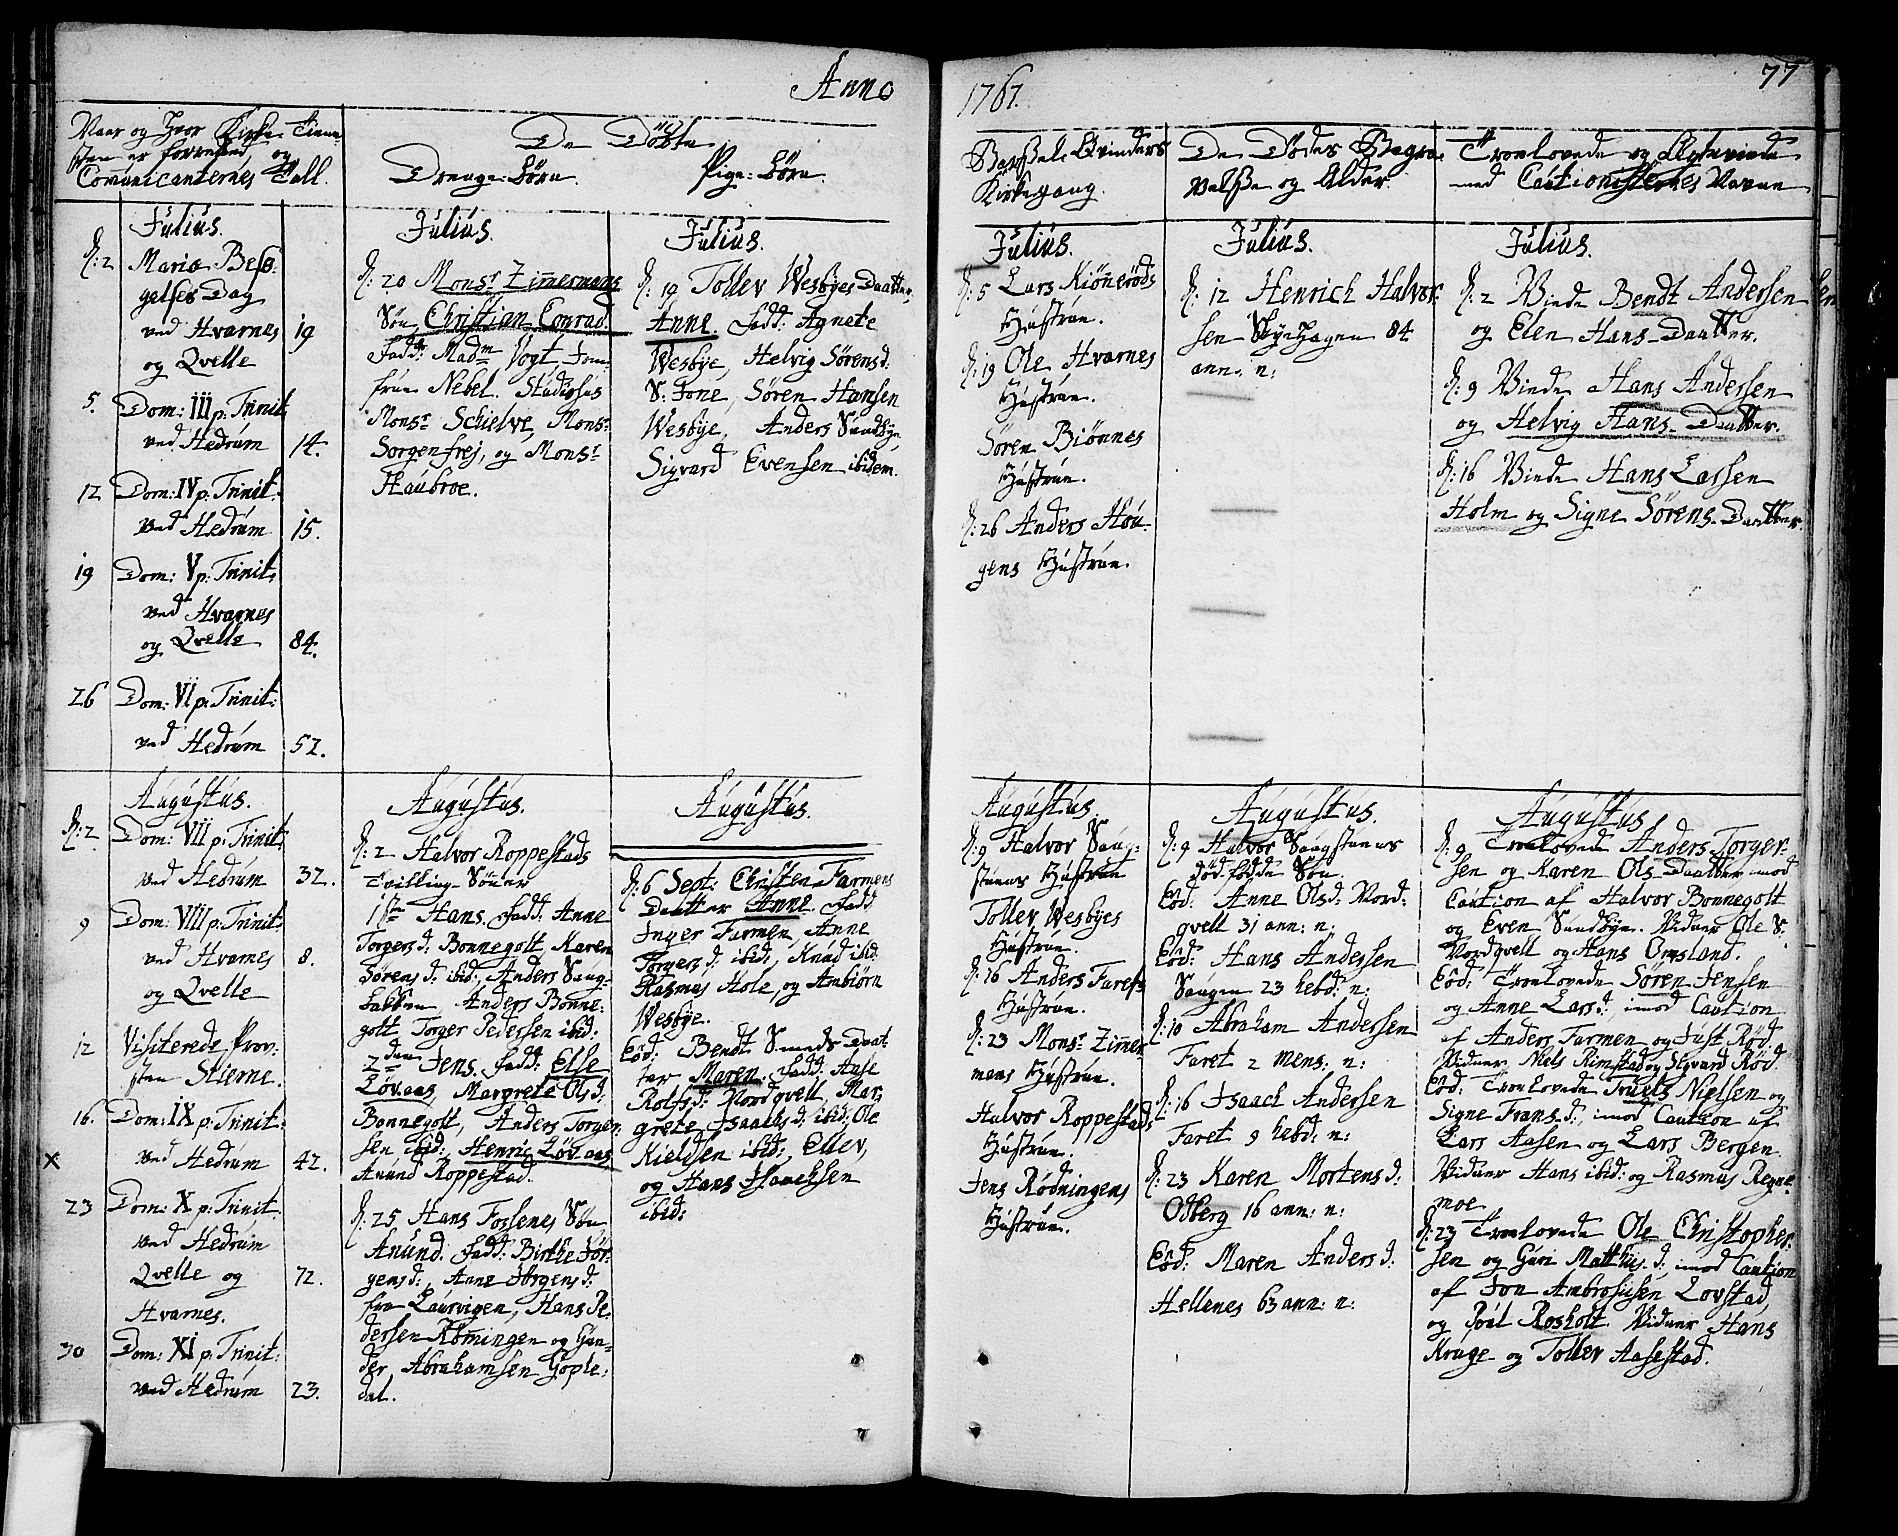 Anno
1767.
77
Naar og hvor Kirke-Tiene-
sten er forrettet, og
Comunicanternes Tall.
De Döbte
Drenge-börn.
Pige-börn.
Barsel Qvinders
Kirkegang.
De Dödes Begra-
velse og Alder
Troelovede og Ægteviede
med Cautionisternes Navne
Julius.
d: 2 Mariæ Besø-
gelses Dag
ved Hvarnes 19
og Qvelle
5. Dom: III p: Trinit:
ved Hedrum 14.
12 Dom: IV p: Trinit:
ved Hedrum 15.
19 Dom: V p: Trinit:
ved Hvarnes
og Qvelle 84.
26 Dom: VI p: Trinit:
ved Hedrum 52.
Julius.
d: 20 Monsr Zimermans
Sön Christian Conrad.
Fadd: Madm Vogt, Jom-
frue Nebel. Studiosus
Monsr Schielve, Monsr
Sorgenfrej, og Monsr
Haubroe.
Julius.
d: 19 Tollev Wesbyes Daatter,
Anne. Fadd: Agnete
Wesbye, Helvig Sörensd:
S: Tone, Sören Hansen
Wesbye, Anders Sundbye,
Sigvard Evensen ibidem.
Julius.
d: 5 Lars Kiöneröds
Hustrue.
d: 19 Ole Hvarnes
Hustrue.
Sören Biönnes
Hustrue.
d: 26 Anders Hou-
gens Hustrue.
Julius.
d: 12 Henrich Halvor-
sen Skyehagen 84
ann: n:
Julius.
d: 2 Viede Bendt Andersen
og Elen Hans-Daatter.
d: 9 Viede Hans Andersen
og Helvig Hans-Daatter.
d: 16 Viede Hans Larsen
Holm og Signe Sörens-Daatter
Augustus.
d: 2 Dom: VII p: Trinit:
ved Hedrum 32.
9 Dom: VIII p: Trinit:
ved Hvarnes 8.
og Qvelle
12 Visiterede Prov-
sten Stierne.
16. Dom: IX p: Trinit:
x ved Hedrum 42.
23 Dom: X p: Trinit:
ved Hedrum
Qvelle og 72.
Hvarnes.
30 Dom: XI p: Trinit:
ved Hedrum 23.
Augustus.
d: 2 Halvor Roppestads
Tvilling-Sönner
1ste Hans. Fadd: Anne
Torgersd: Bonnegolt, Karen
Sörensd: ibid:, Anders Saug-
bakken Anders Bonne-
golt Torger Pedersen ibid:
2den Jens. Fadd: Else
Lövaas, Margrete Olsd:
Bonnegolt, Anders Torger-
sen ibid: Henric Lövaas
Anund Roppestad.
d: 25 Hans Fossenes Sön
Anund. Fadd: Birthe Jör-
gensd:, Anne Jörgensd:
fra Laurvigen, Hans Pe-
dersen Römingen og Gun-
der Abrahamsen Gople-
dal.
Augustus.
d: 6 Sept: Christen Farmens
Daatter Anne. Fadd
Inger Farmen, Anne
Torgersd: ibid:, Knud ibid:
Rasmus Hole, og Ambiörn
Wesbye.
Eod: Bendt Smeds Daat-
ter Maren. Fadd: Anse
Rolfsd: Nordqvell, Mar-
grete Isaachsd: ibid: Ole
Kieldsen ibid:, Ellev,
og Hans Isaachsen
ibid:
Augustus.
d: 9 Halvor Saug-
stuens Hustrue
Tollev Wesbyes
Hustrue.
d: 16 Anders Farets
Hustrue.
d: 23 Monsr Zimer-
mans Hustrue.
Halvor Roppestads
Hustrue.
Jens Rödningens
Hustrue.
Augustus.
d: 9 Halvor Saugstuens
dödfödde Sön.
Eod: Anne Olsd: Nord-
qvell 31 ann: n:
Eod: Hans Andersen
Saugen 23 hebd: n:
d: 10 Abraham Andersen
Faret 2 mens: n:
d: 16 Isaach Andersen
Faret 9 hebd: n:
d: 23 Karen Mortensd:
Odberg 16 ann: n:
Eod: Maren Andersd:
Hellenes 63 ann: n:
Augustus
d: 9 Troelovede Anders Torger-
sen og Karen Ols-Daatter imod
Caution af Halvor Bonnegolt
og Even Sundbye. Vidner Ole S:
Nordqvell og Hans Omsland.
Eod: Troelovede Sören Jensen
og Anne Larsd:, imod Caution
af Anders Farmen og Just Röd.
Vidner Niels Rimstad og Sigvard Röd.
Eod: Troelovede Truels Nielsen og
Signe Fransd:, imod Caution af
Lars Aasen og Lars Bergen.
Vidner Hans ibid: og Rasmus Regne-
moe
d: 23 Troelovede Ole Christopher-
sen og Guri Matthisd:, imod Caution
af Jon Ambrosiisen Lovstad,
og Poul Rosholt. Vidner Hans
Kruge og Tollev Aasestad.